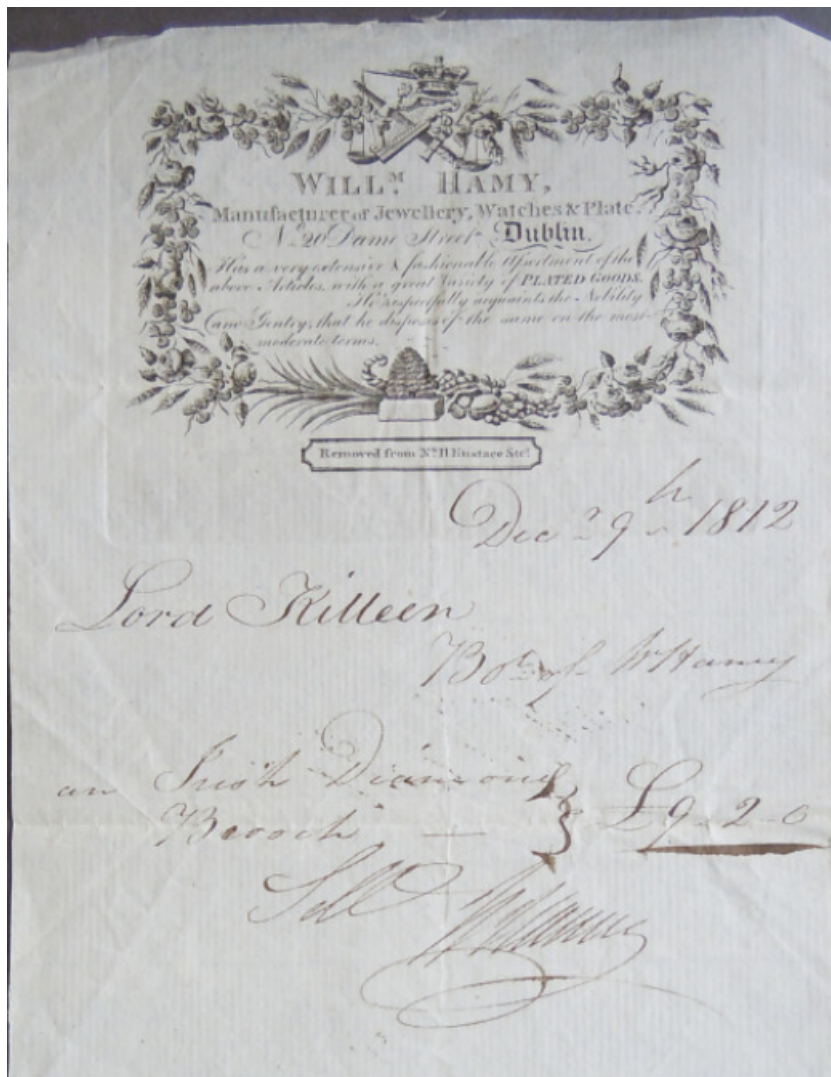 WILL.M HAMY,
Manufacturer of Jewellery, Watches & Plate.
No. 20 Dame Street Dublin.
Has a very extensive & fashionable Assortment of the
above Articles, with a great Variety of PLATED GOODS.
He respectfully acquaints the Nobility
and Gentry, that he disposes of the same on the most
moderate terms.
Removed from No. 11 Eustace Stt.
Dec 29th 1812
Lord Killeen
Bot. of Wm Hamy
an Irish Diamond
Brooch — } £9-2-0
W Hamy